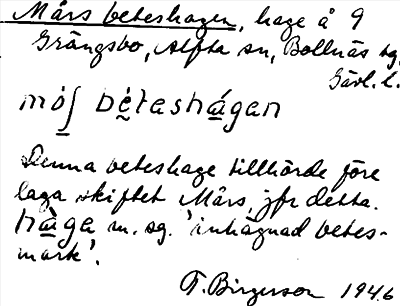 Mårs beteshagen, hage å 9
Grängsbo, Alfta sn, Bollnäs tg,
Gävl. l.
mo̱ʃ bètashágan
Denna beteshage tillhörde före
laga skiftet Mårs, jfr detta.
hàga m. sg. 'inhägnad betes-
mark'.
T. Birgerson 1946